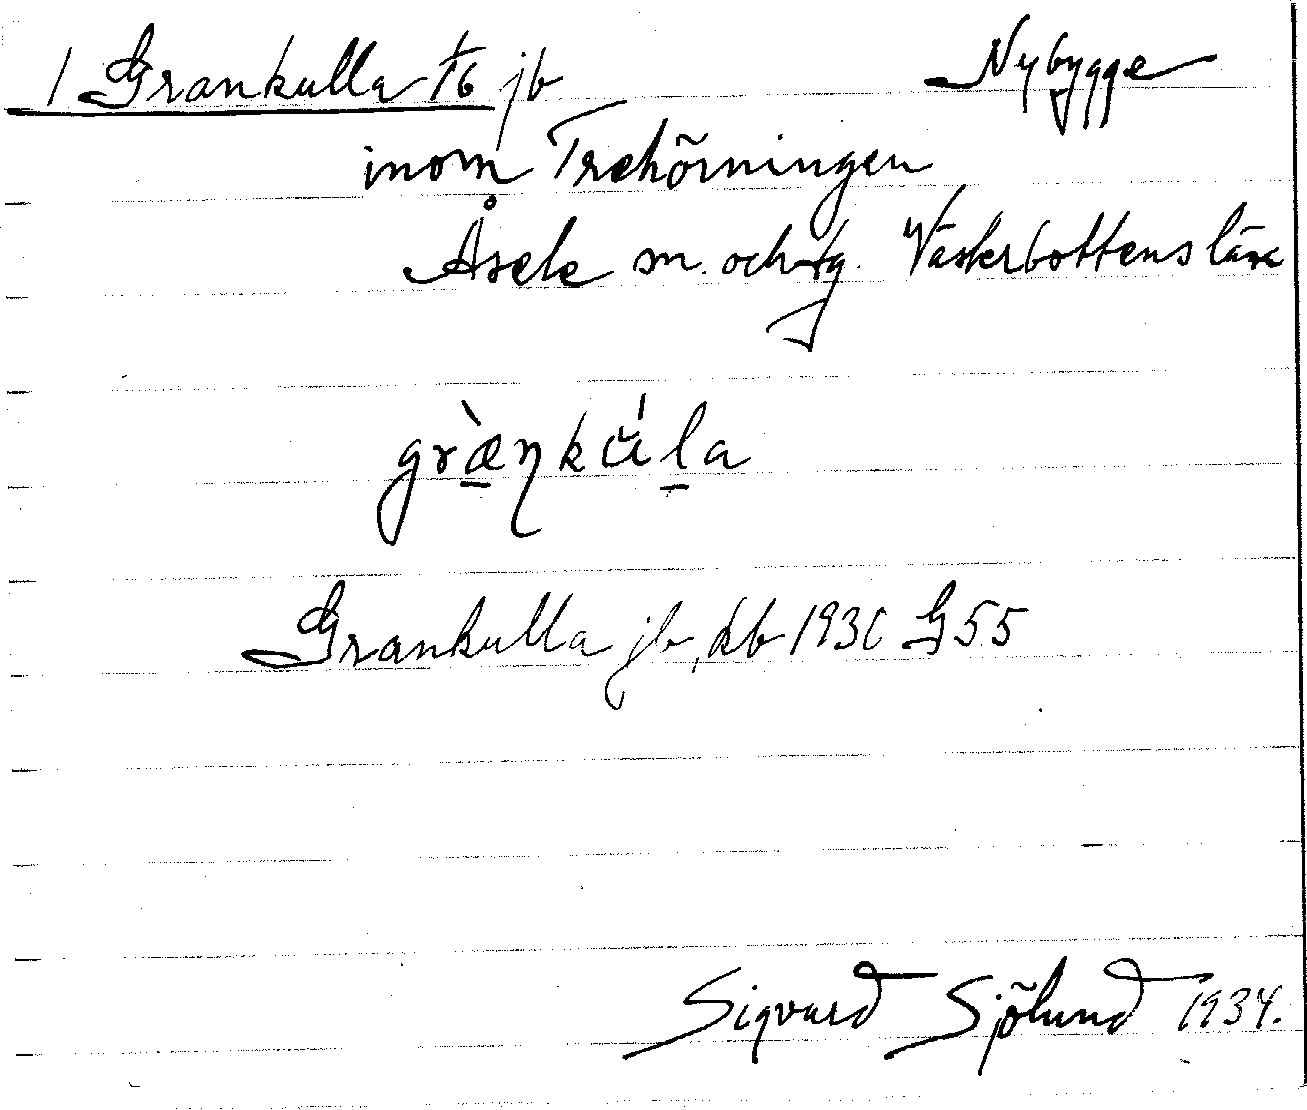 1 Grankulla 1/16 jb Nybygge
inom Trehörningen
Åsele sn. och tg. Västerbottens län
græ̀ŋkŭ́la
Grankulla jb, kb 1930 G 55
Sigvard Sjölund 1934.